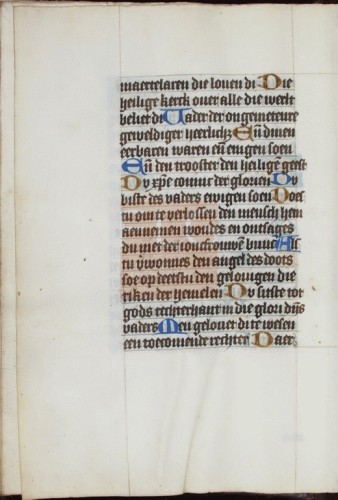 maertelaren die louen di Die
heilige kerck ouer alle die werlt
beliet di Vader der ongemeteure
geweldiger heerlicz En dinen
eerbaren waren en ewigen soen
En den trooster den heilige geest
Du xpe coninc der glorien Du
biste des vaders ewigen soen Doe
tu om te verlossen den mensch hem
aennemen woudes en ontsages
du niet der ioncfrouwen buuc Als
tu verwonnes den angel des doots
soe opdeetstu den gelouigen die
riken der hemelen Du sitste tot
gods rechterhant in die glori dijns
vaders Men gelouet di te wesen
een toecomende rechter Daer